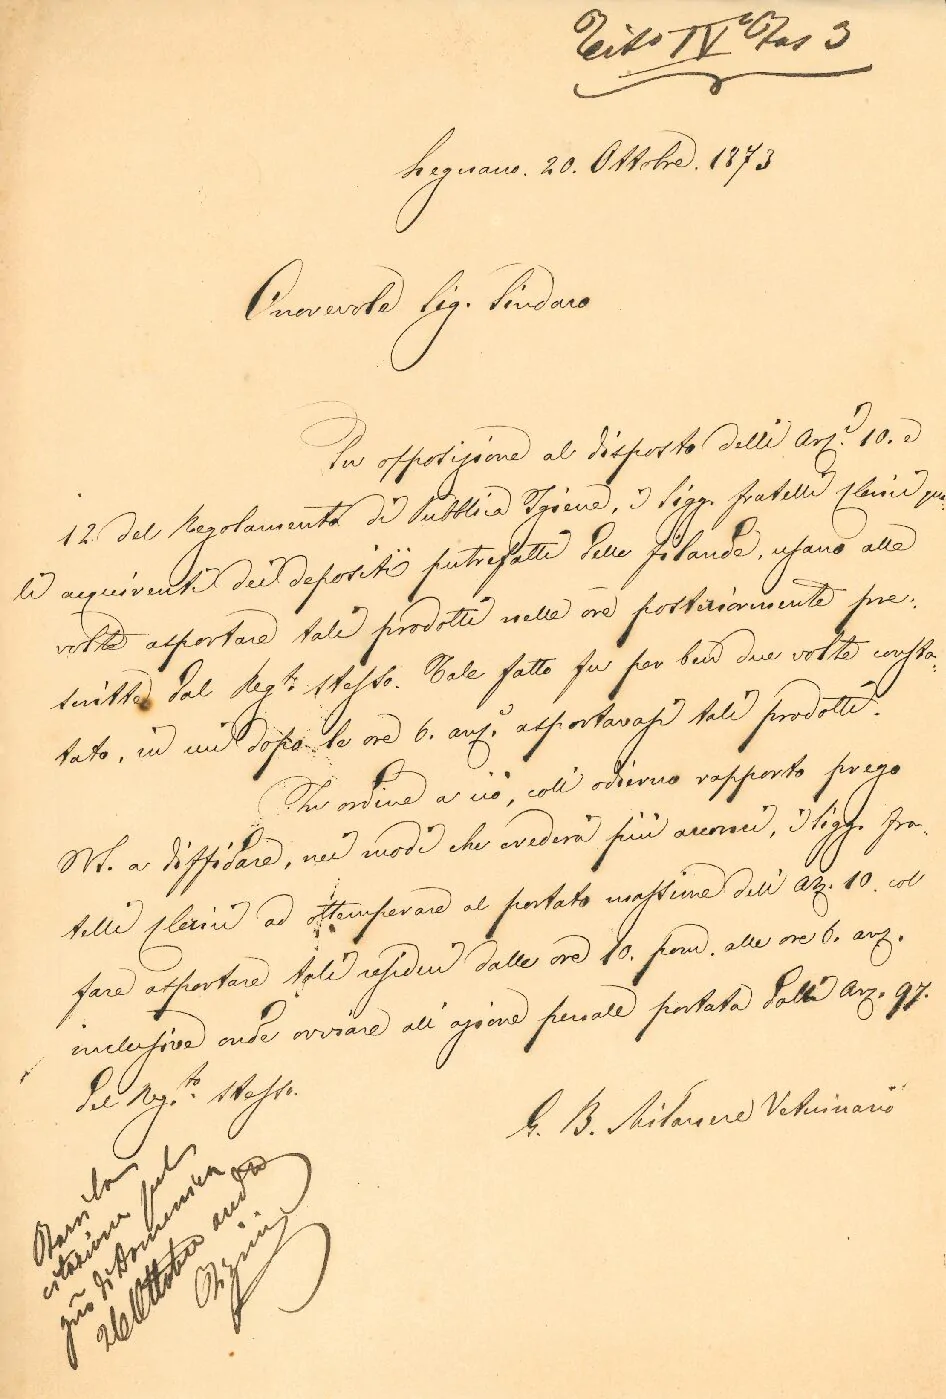 Tito IV Fas 3
Legnano. 20. Ottobre. 1873
Onorevole Sig. Sindaco
In opposizione al disposto delli Arz.i 10. e
12 del Regolamento di Pubblica Igiene, i Sigg. fratelli Clerici qua-
li acquirenti dei depositi putrefatti delle filande, usano alle
volte asportare tali prodotti nelle ore posteriormente pre-
scritte dal Reg.to stesso. Tale fatto fu per ben due volte consta-
tato, in cui dopo le ore 6. anz.e asportavasi tali prodotti.
In ordine a ciò, coll odierno rapporto prego
VS. a diffidare, nei modi che crederà più acconci, i Sigg. fra-
telli Clerici ad ottemperare al portato massime dell Arz. 10. col
fare asportare tali residui dalle ore 10. pom. alle ore 6. anz.
inclusive onde ovviare all azione penale portata dall Arz. 97.
del Reg.to stesso.
G. B. Milanese Veterinario
Farsi la
citazione pel
gno di Domenica
26 Ottobre and.e